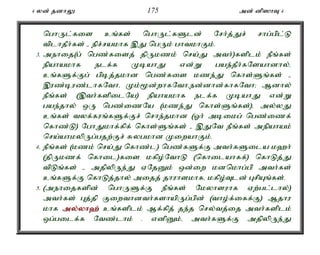 4 லன் தனாலூ 175 அன் னிஸாவு 4
பொருட்களை உங்கள் பொருட்களுடன் சேர்த்துச் சாப்பிட்டு
விடாதீர்கள் - நிச்சயமாக இது பெரும் பாவமாகும்.
3. அநாதை(ப் பெண்களைத் திருமணம் செய்து அவர்)களிடம் நீங்கள்
நியாயமாக நடக்க முடியாது என்று பயந்தீர்களேயானால்,
உங்களுக்குப் பிடித்தமான பெண்களை மணந்து கொள்ளுங்கள் -
இரண்டிரண்டாகவோ, மும்மூன்றாகவோ,நன்னான்காகவோ; ஆனால்
நீங்கள் (இவர்களிடையே) நியாயமாக நடக்க முடியாது என்று
பயந்தால் ஒரு பெண்ணையே (மணந்து கொள்ளுங்கள்), அல்லது
உங்கள் வலக்கரங்களுக்குச் சொந்தமான (ஓர் அடிமைப் பெண்ணைக்
கொண்டு) போதுமாக்கிக் கொள்ளுங்கள் - இதுவே நீங்கள் அநியாயம்
செய்யாமலிருப்பதற்குச் சுலபமான முறையாகும்.
4. நீங்கள் (மணம் செய்து கொண்ட) பெண்களுக்கு அவர்களுடைய மஹர்
(திருமணக் கொடை)களை மகிழ்வோடு (கொடையாகக்) கொடுத்து
விடுங்கள் - அதிலிருந்து ஏதேனும் ஒன்றை மனமொப்பி அவர்கள்
உங்களுக்கு கொடுத்தால் அதைத் தாராளமாக, மகிழ்வுடன் புசியுங்கள்.
5. (அநாதைகளின் பொருளுக்கு நீங்கள் மேலாளராக ஏற்பட்டால்)
அவர்கள் புத்தி குறைவானவர்களாயிருப்பின் (வாழ்க்கைக்கு) ஆதார
மாக அல்லாஹ் உங்களிடம் ஆக்கித் தந்த செல்வத்தை அவர்களிடம்
ஒப்படைக்க வேண்டாம் - எனினும், அவர்களுக்கு அதிலிருந்து